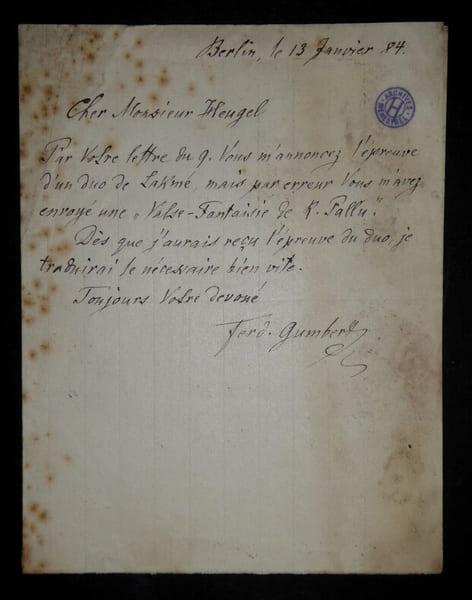 Berlin, le 13 Janvier 84.
ARCHIVES
H
HEUGEL
Cher Monsieur Heugel
Par Votre lettre du 9. Vous m'annoncez l'épreuve
d'un duo de Lakmé, mais par erreur Vous m'avez
envoyé une „Valse-Fantaisie de R. Pallu".
Dès que j'aurais reçu l'épreuve du duo, je
traduirai le nécessaire bien vite.
Toujours Votre dévoué
Ferd. Gumbert